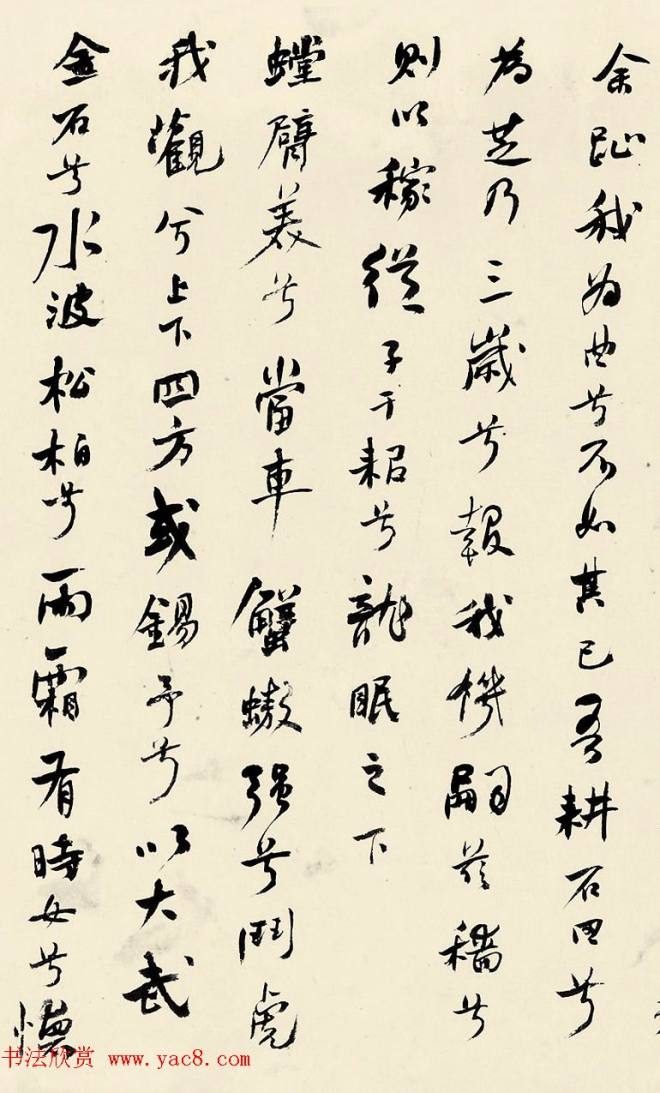 余 我為曲兮不如其已吾耕石田兮
為芝乃三歲兮報我機嗣茲穡兮
則以稼從子于耜兮龍眠之下
螳臂美兮當車蟹螯强兮鬥虎
我觀兮上下四方或錫予兮以大武
金石兮水波松柏兮雨霜有時女兮懷
书法欣赏 www.yac8.com